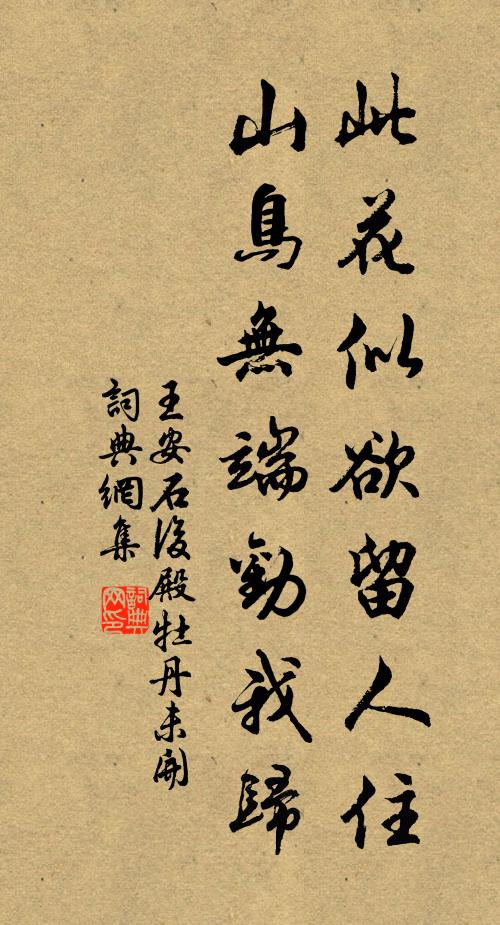 此花似欲留人住
山鳥無端勸我歸
王安石後殿牡丹未開
詞典網集
詞典網印